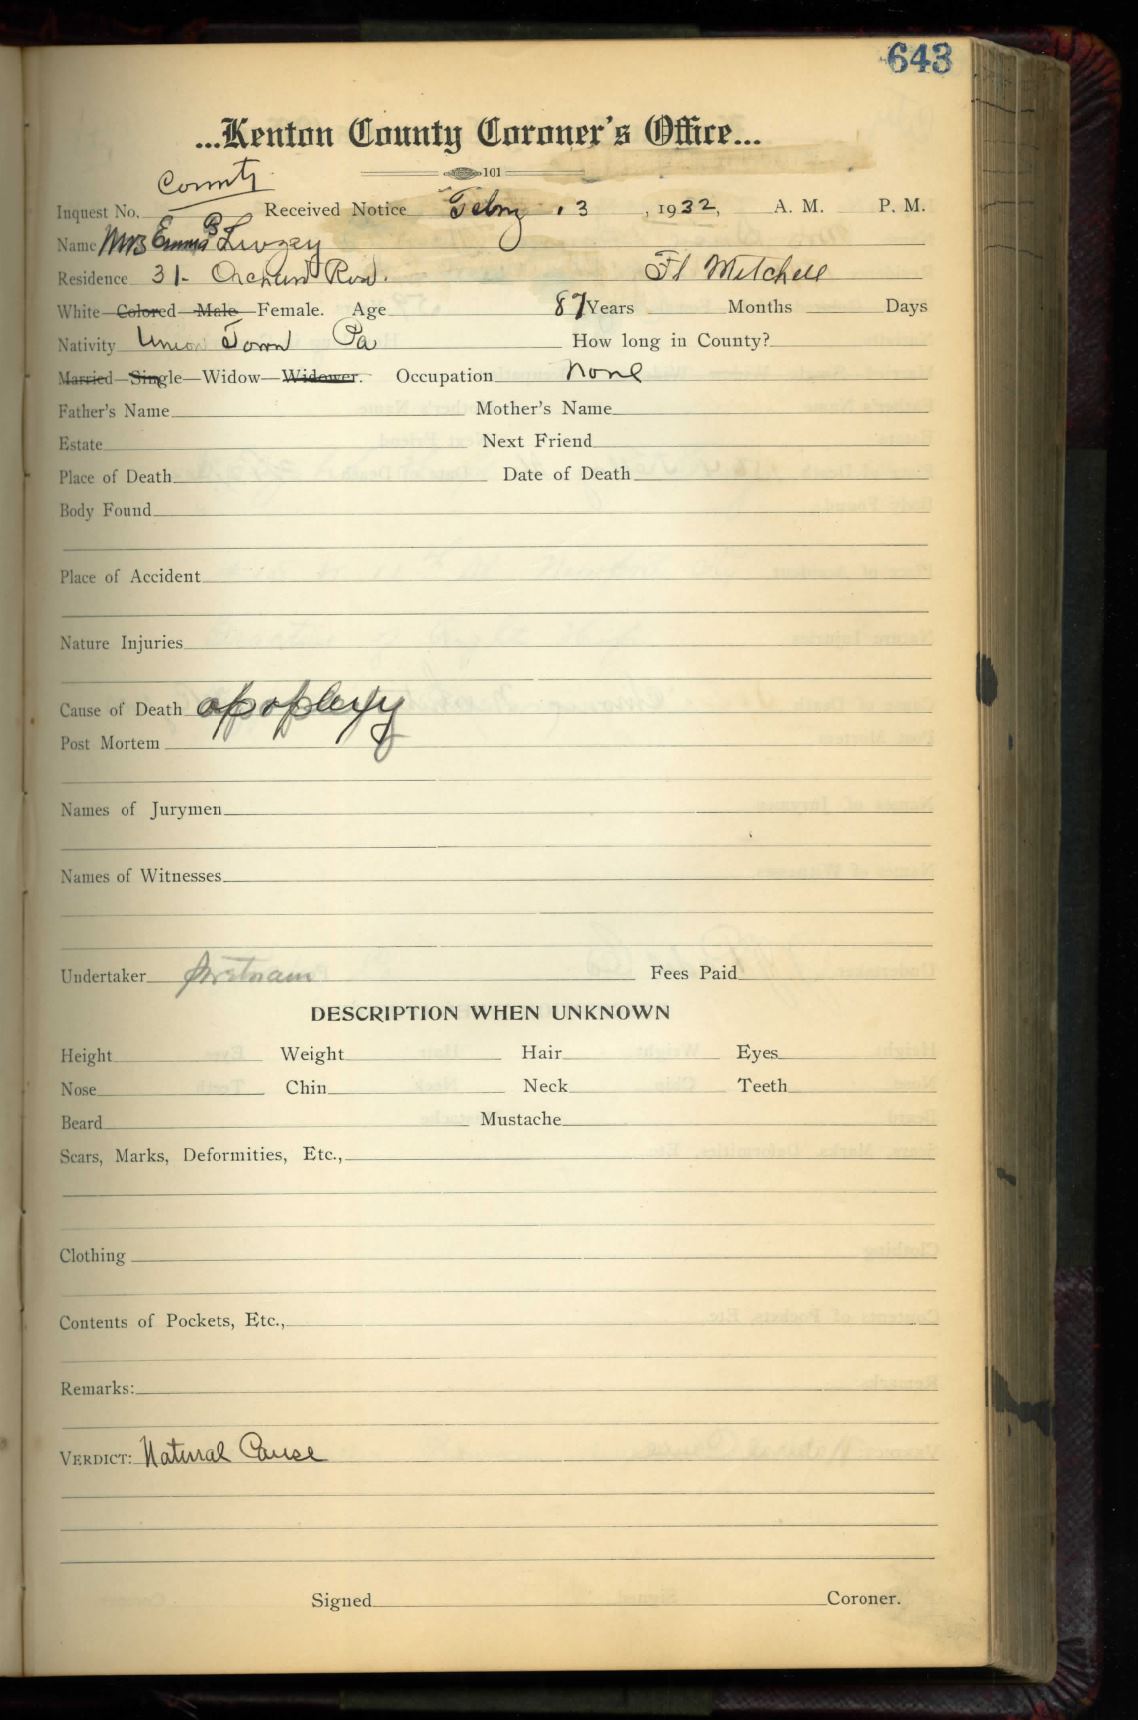 643
...Kenton County Coroner's Office...
101
County
Inquest No. Received Notice Febry 13, 1932, A. M. P. M.
Name Mrs Emma B Livezey
Residence 31- Orchard Road. Ft Mitchell
White—Colored—Male—Female. Age 87 Years Months Days
Nativity Union Town Pa How long in County?
Married—Single—Widow—Widower. Occupation none
Father's Name Mother's Name
Estate Next Friend
Place of Death Date of Death
Body Found
Place of Accident
Nature Injuries
Cause of Death apoplexy
Post Mortem
Names of Jurymen
Names of Witnesses
Undertaker Fees Paid
DESCRIPTION WHEN UNKNOWN
Height Weight Hair Eyes
Nose Chin Neck Teeth
Beard Mustache
Scars, Marks, Deformities, Etc.,
Clothing
Contents of Pockets, Etc.,
Remarks:
VERDICT: Natural Cause
Signed Coroner.